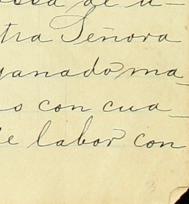 ossa de u-
tra Señora
ganado ma-
s con cua-
e labor con
3